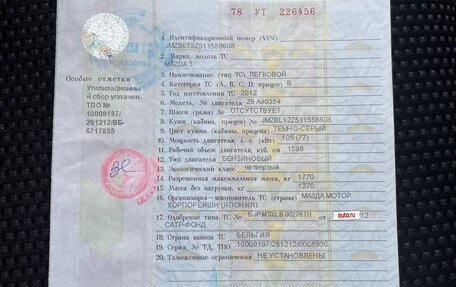 78 УТ 226456
1. Идентификационный номер (VIN)
JMZBL12Z511558608
2. Марка, модель ТС
MAZDA 3
3. Наименование (тип ТС) ЛЕГКОВОЙ
4. Категория ТС (A, B, C, D, прицеп) B
5. Год изготовления ТС 2012
6. Модель, № двигателя Z6 A90354
7. Шасси (рама) № ОТСУТСТВУЕТ
8. Кузов (кабина, прицеп) № JMZBL12Z511558608
9. Цвет кузова (кабины, прицепа) ТЕМНО-СЕРЫЙ
10. Мощность двигателя, л. с. (кВт) 105 (77)
11. Рабочий объем двигателя, куб. см 1598
12. Тип двигателя БЕНЗИНОВЫЙ
13. Экологический класс четвертый
14. Разрешенная максимальная масса, кг 1770
15. Масса без нагрузки, кг 1270
16. Организация—изготовитель ТС (страна) МАЗДА МОТОР
КОРПОРЕЙШН (ЯПОНИЯ)
17. Одобрение типа ТС № от auto.ru 12
САТР-ФОНД
18. Страна вывоза ТС БЕЛЬГИЯ
19. Серия, № ТД, ТПО 10009197/281212/0008936
20. Таможенные ограничения НЕ УСТАНОВЛЕНЫ
Особые отметки
Утилизационны
й сбор уплачен.
ТПО №
10009197/
281212/ВБ-
6717855